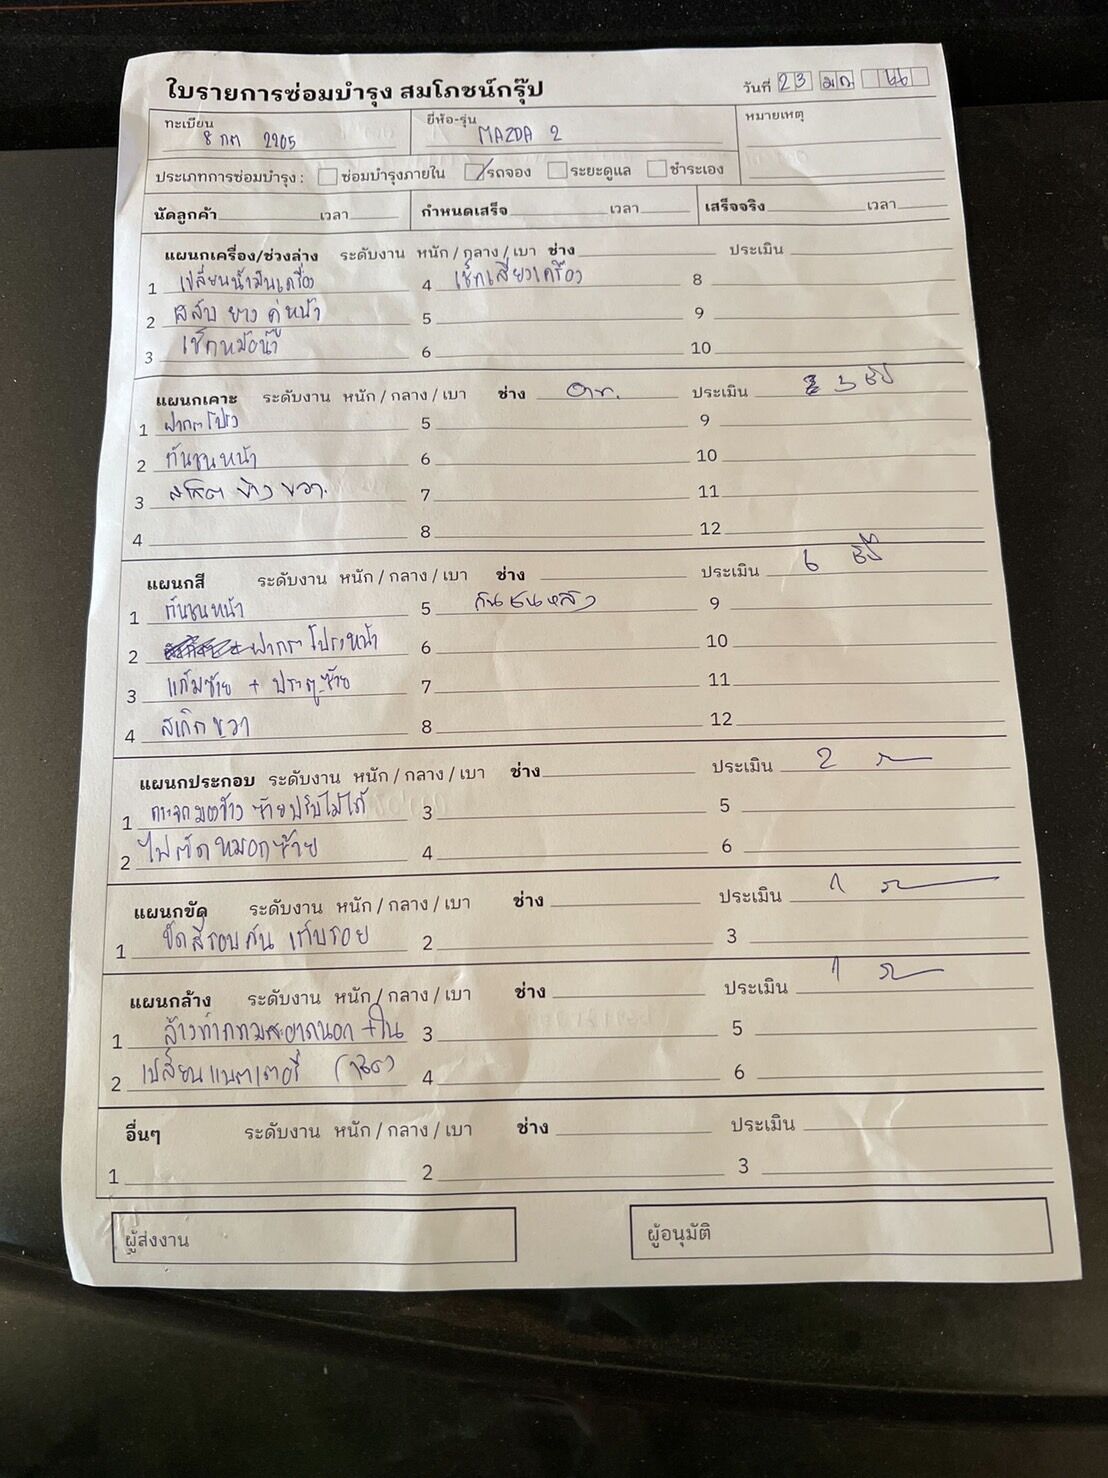 ใบรายการซ่อมบำรุง สมโภชน์กรุ๊ป
วันที่ 23 มค 66
ทะเบียน 8 กต 2205 ยี่ห้อ-รุ่น MAZDA 2 หมายเหตุ
ประเภทการซ่อมบำรุง : ซ่อมบำรุงภายใน รถจอง ระยะดูแล ชำระเอง
นัดลูกค้า เวลา กำหนดเสร็จ เวลา เสร็จจริง เวลา
แผนกเครื่อง/ช่วงล่าง ระดับงาน หนัก / กลาง / เบา ช่าง ประเมิน
1 เปลี่ยนน้ำมันเครื่อง 4 เช็คเสียงเครื่อง 8
2 สลับ ยาง คู่หน้า 5 9
3 เช็คหม้อน้ำ 6 10
แผนกเคาะ ระดับงาน หนัก / กลาง / เบา ช่าง ประเมิน 3 ชิ้น
1 ฝากระโปรง 5 9
2 กันชนหน้า 6 10
3 ข้าง ขวา 7 11
4 8 12
แผนกสี ระดับงาน หนัก / กลาง / เบา ช่าง ประเมิน 6 ชิ้น
1 กันชนหน้า 5 กันชนหลัง 9
2 ฝากระโปรงหน้า 6 10
3 แก้มซ้าย + ประตูซ้าย 7 11
4 สเกิตขวา 8 12
แผนกประกอบ ระดับงาน หนัก / กลาง / เบา ช่าง ประเมิน 2
1 กระจกมองข้าง ซ้ายปรับไม่ได้ 3 5
2 ไฟตัดหมอกซ้าย 4 6
แผนกขัด ระดับงาน หนัก / กลาง / เบา ช่าง ประเมิน 1
1 ขัดสีรอบคัน เก็บรอย 2 3
แผนกล้าง ระดับงาน หนัก / กลาง / เบา ช่าง ประเมิน 1
1 ล้างทำความสะอาดนอก + ใน 3 5
2 เปลี่ยนแบตเตอรี่ 4 6
อื่นๆ ระดับงาน หนัก / กลาง / เบา ช่าง ประเมิน
1 2 3
ผู้ส่งงาน ผู้อนุมัติ